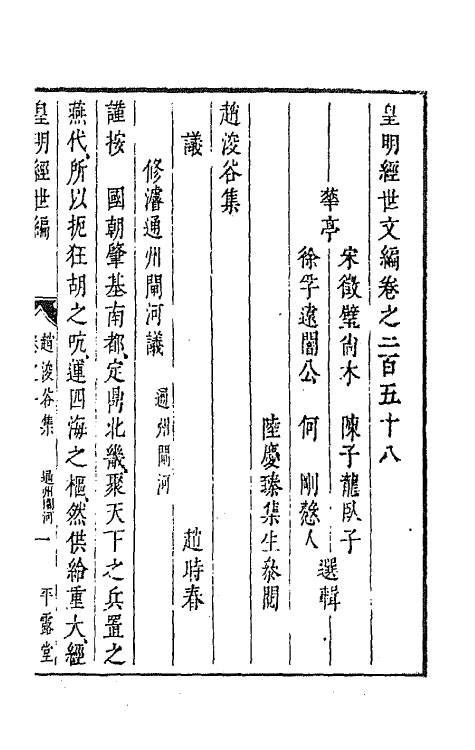 皇明經世文編卷之二百五十八
華亭
宋徵璧尚木
陳子龍臥子
徐孚遠闇公
何剛愨人
選輯
陸慶臻集生參閱
趙浚谷集
趙時春
議
修濬通州閘河議
通州閘河
謹按 國朝肇基南都、定鼎北畿、聚天下之兵置之
燕代、所以扼狂胡之吭、運四海之樞、然供給重大、經
皇明經世編
趙浚谷集
通州閘河
一
平露堂